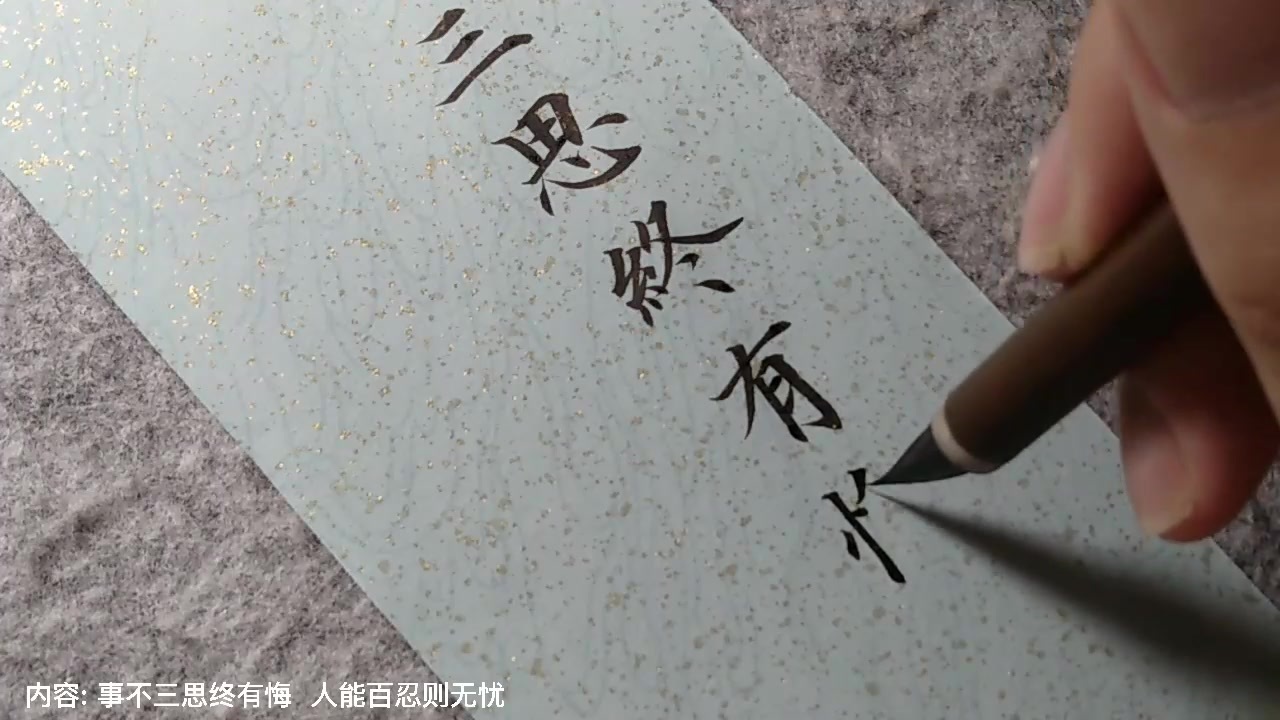 三思終有
内容: 事不三思终有悔 人能百忍则无忧